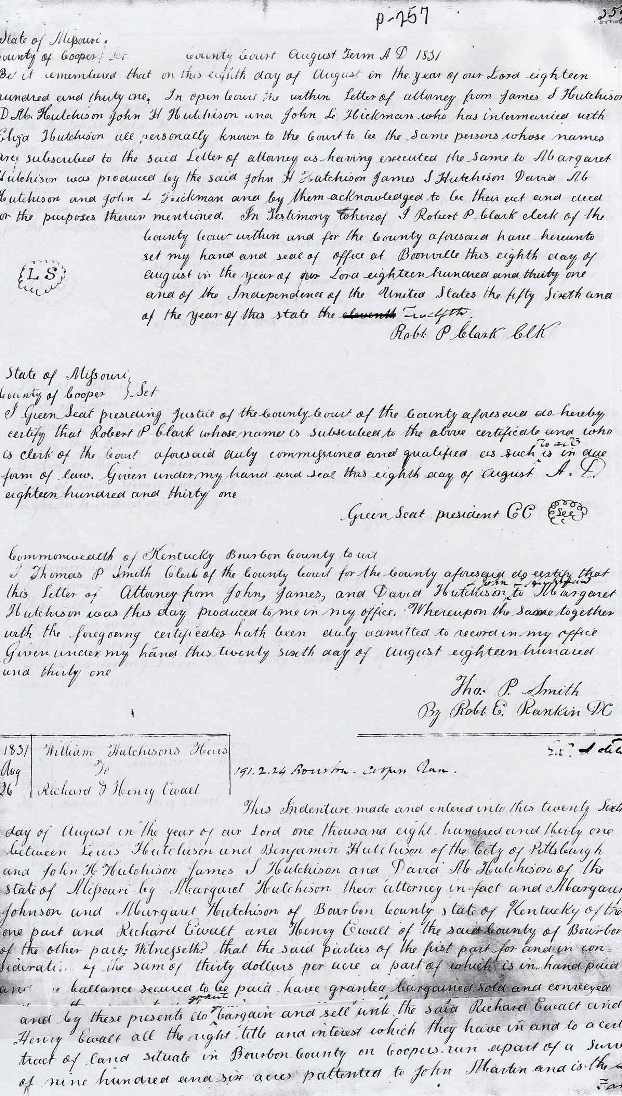 p-257
State of Missouri,
County of Cooper County Court August Term A D 1831
Be it remembered that on this eighth day of August in the year of our Lord eighteen
hundred and thirty one, In open Court the within Letter of attorney from James S Hutchison
D. Mc Hutchison John H Hutchison and John L Hickman who has intermarried with
Eliza Hutchison all personally known to the Court to be the same persons whose names
are subscribed to the said Letter of attorney as having executed the same to Margaret
Hutchison was produced by the said John H Hutchison James S Hutcheson David Mc
Hutchison and John L Hickman and by them acknowledged to be their act and deed
for the purposes therein mentioned. In Testimony Whereof I Robert P. Clark clerk of the
County Court within and for the County aforesaid have hereunto
set my hand and seal of office at Boonville this eighth day of
August in the year of our Lord eighteen hundred and thirty one
and of the Independence of the United States the fifty sixth and
of the year of this state the eleventh Twelfth.
L S
Robt P Clark Clk
State of Missouri,
County of Cooper } Sct
I Green Seat presiding Justice of the County Court of the County aforesaid do hereby
certify that Robert P Clark whose name is subscribed to the above certificate and who
is clerk of the Court aforesaid duly commissioned and qualified as such is in due
form of law. Given under my hand and seal this eighth day of August A. D.
eighteen hundred and thirty one
Green Seat president CC Seal
Commonwealth of Kentucky Bourbon County to wit
I Thomas P Smith Clerk of the County Court for the County aforesaid do certify that
this Letter of Attorney from John, James, and David Hutchison to Margaret
Hutchison was this day produced to me in my office. Whereupon the same together
with the foregoing certificates hath been duly admitted to record in my office
Given under my hand this twenty sixth day of August eighteen hundred
and thirty one
Tho. P. Smith
By Robt E. Rankin DC
1831 William Hutchisons Heirs
Aug To 191.2.24 Houston-Coopers Run.
26 Richard & Henry Ewalt
This Indenture made and entered into this twenty sixth
day of August in the year of our Lord one thousand eight hundred and thirty one
between Lewis Hutchison and Benjamin Hutchison of the City of Pittsburgh
and John H Hutchison James S Hutchison and David Mc Hutchison of the
state of Missouri by Margaret Hutchison their attorney in fact and Margaret
Johnson and Margaret Hutchison of Bourbon County state of Kentucky of the
one part and Richard Ewalt and Henry Ewalt of the said County of Bourbon
of the other part; Witnesseth that the said parties of the first part for and in con-
sideration of the sum of thirty dollars per acre a part of which is in hand paid
and ballance secured to be paid have granted bargained sold and conveyed
and by these presents do grant bargain and sell unto the said Richard Ewalt and
Henry Ewalt all the right title and interest which they have in and to a cert
tract of land situate in Bourbon County on Coopers run apart of a surv
of nine hundred and six acres pattented to John Martin and is the